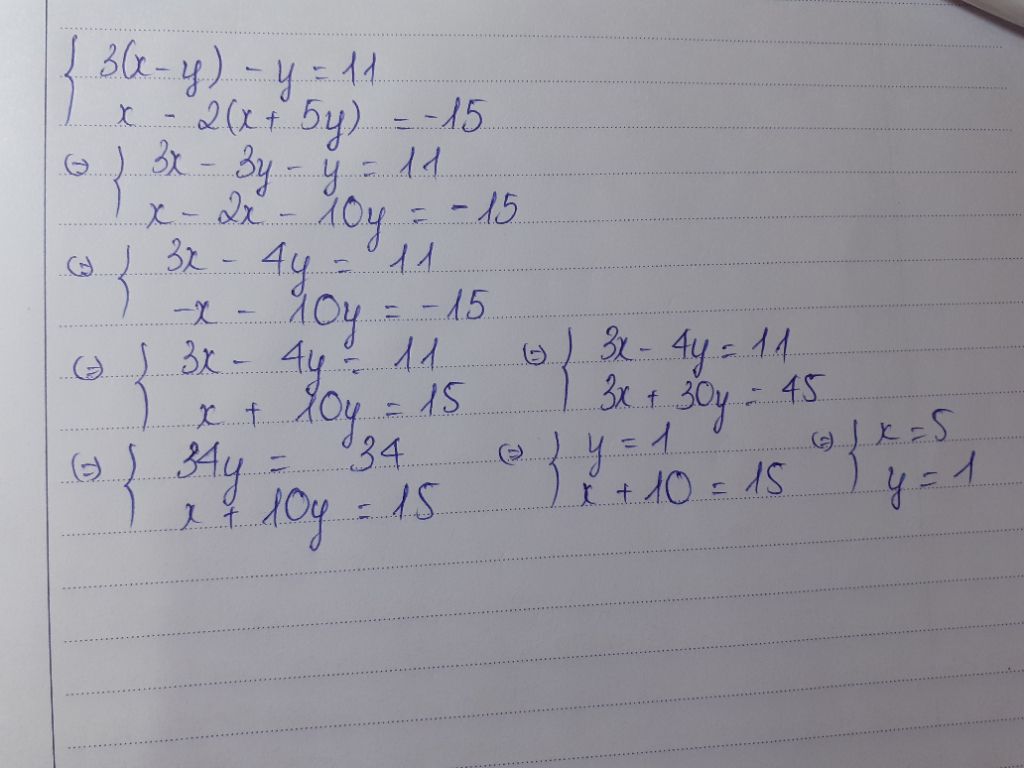 { 3(x - y) - y = 11
x - 2(x + 5y) = -15
⇔ { 3x - 3y - y = 11
x - 2x - 10y = -15
⇔ { 3x - 4y = 11
-x - 10y = -15
⇔ { 3x - 4y = 11 ⇔ { 3x - 4y = 11
x + 10y = 15 3x + 30y = 45
⇔ { 34y = 34 ⇔ { y = 1 ⇔ { x = 5
x + 10y = 15 x + 10 = 15 y = 1